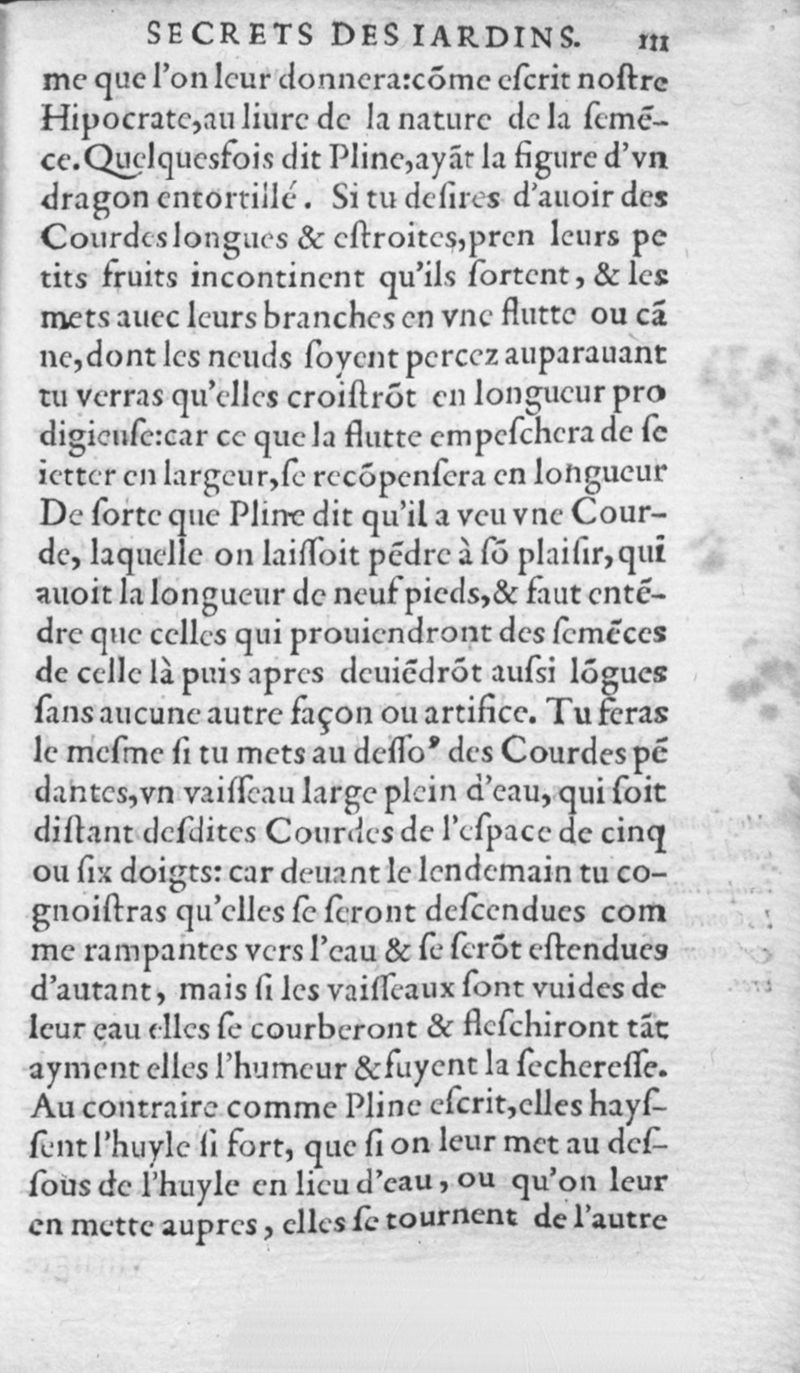 SECRETS DES IARDINS. III
me que l'on leur donnera:cõme eſcrit noſtre
Hipocrate,au liure de la nature de la ſemẽ-
ce.Quelquesfois dit Pline,ayãt la figure d'vn
dragon entortillé. Si tu deſires d'auoir des
Courdes longues & eſtroites,pren leurs pe
tits fruits incontinent qu'ils ſortent, & les
mets auec leurs branches en vne flutte ou cã
ne,dont les neuds ſoyent percez auparauant
tu verras qu'elles croiſtrõt en longueur pro
digieuſe:car ce que la flutte empeſchera de ſe
ietter en largeur,ſe recõpenſera en longueur
De ſorte que Pline dit qu'il a veu vne Cour-
de, laquelle on laiſſoit pẽdre à ſõ plaiſir,qui
auoit la longueur de neuf pieds,& faut entẽ-
dre que celles qui prouiendront des ſemẽces
de celle là puis apres deuiẽdrõt auſsi lõgues
ſans aucune autre façon ou artifice. Tu feras
le meſme ſi tu mets au deſſoꝰ des Courdes pẽ
dantes,vn vaiſſeau large plein d'eau, qui ſoit
diſtant deſdites Courdes de l'eſpace de cinq
ou ſix doigts: car deuant le lendemain tu co-
gnoiſtras qu'elles ſe ſeront deſcendues com
me rampantes vers l'eau & ſe ſerõt eſtendues
d'autant, mais ſi les vaiſſeaux ſont vuides de
leur eau elles ſe courberont & fleſchiront tãt
ayment elles l'humeur & fuyent la ſechereſſe.
Au contraire comme Pline eſcrit,elles hayſ-
ſent l'huyle ſi fort, que ſi on leur met au deſ-
ſous de l'huyle en lieu d'eau, ou qu'on leur
en mette aupres, elles ſe tournent de l'autre